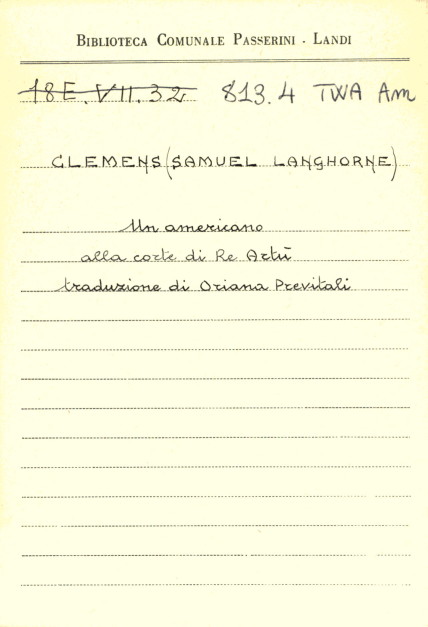 BIBLIOTECA COMUNALE PASSERINI - LANDI
18E.VII.32 813.4 TWA Am
CLEMENS (SAMUEL LANGHORNE)
Un americano
alla corte di Re Artù
traduzione di Oriana Previtali